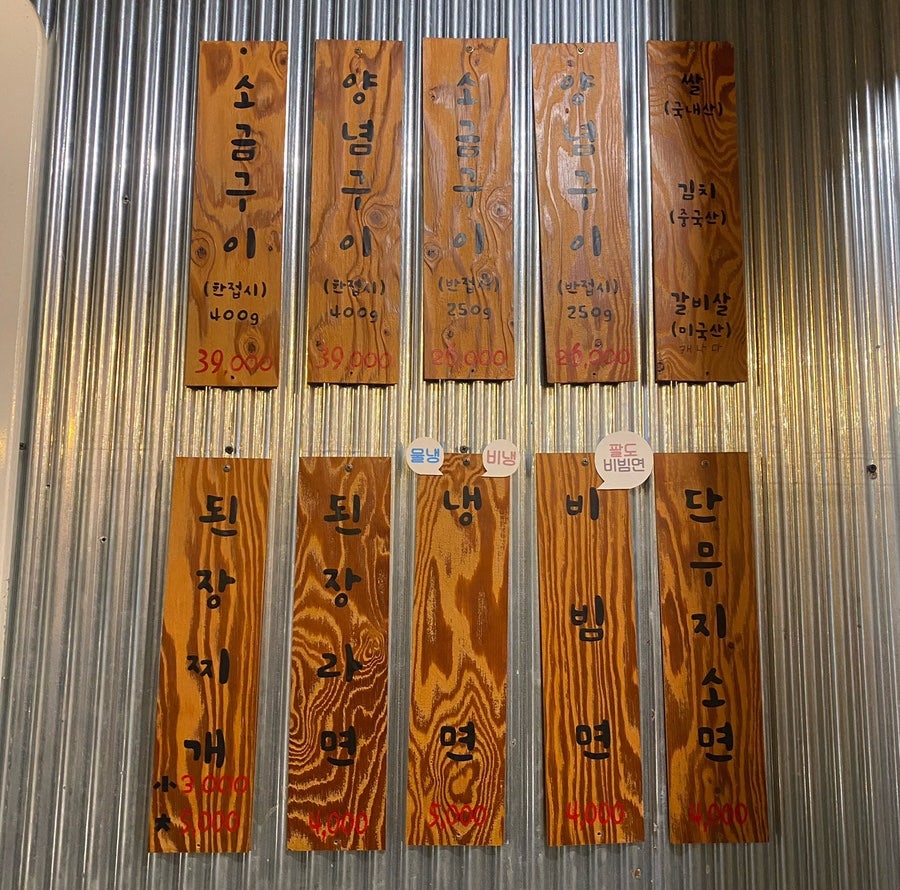 소금구이
(한접시)
400g
39,000
양념구이
(한접시)
400g
39,000
소금구이
(반접시)
250g
26,000
양념구이
(반접시)
250g
26,000
쌀
(국내산)
김치
(중국산)
갈비살
(미국산)
캐나다
된장찌개
小 3,000
大 5,000
된장라면
4,000
물냉
비냉
냉면
5,000
팔도
비빔면
비빔면
4,000
단무지소면
4,000